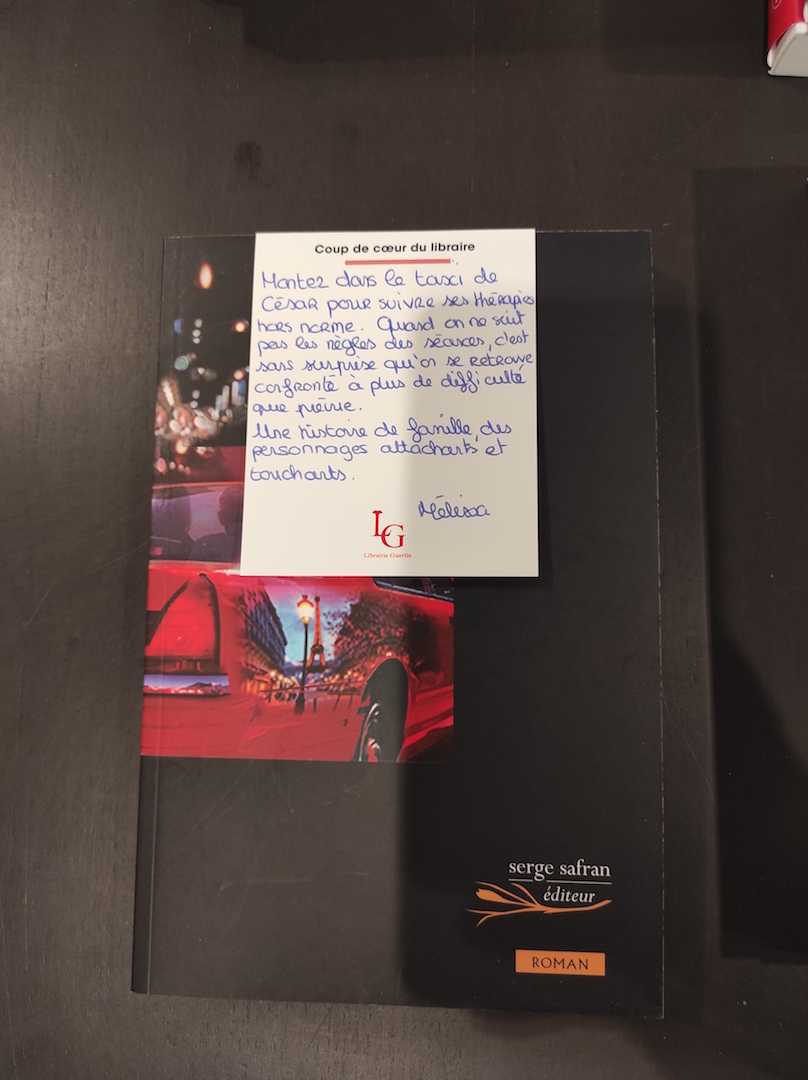 Coup de cœur du libraire
Montez dans le taxi de
César pour suivre ses thérapies
hors norme. Quand on ne suit
pas les règles des séances, c'est
sans surprise qu'on se retrouve
confronté à plus de difficulté
que prévue.
Une histoire de famille, des
personnages attachants et
touchants.
Mélissa
LG
Librairie Guerlin
serge safran
éditeur
ROMAN